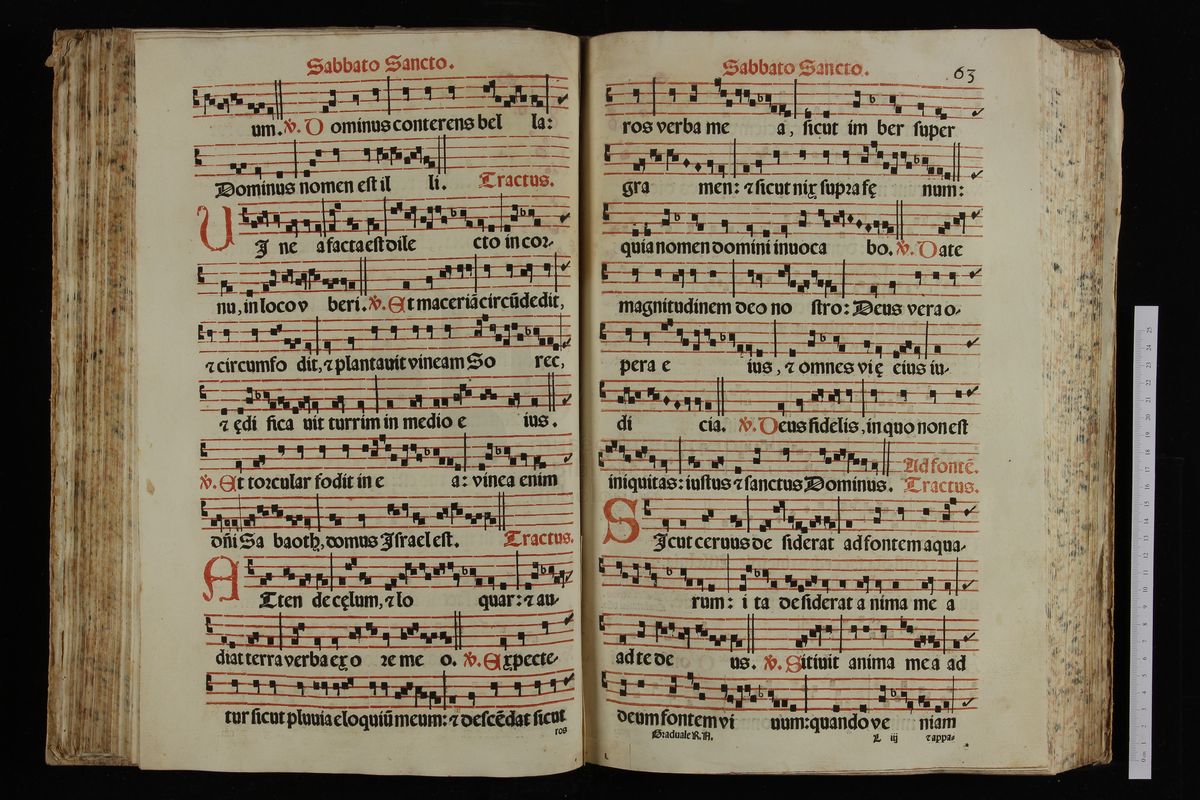 Sabbato Sancto.
um. ℣. Dominus conterens bel la:
Dominus nomen est il li. Tractus.
VI ne a facta est dile cto in cor-
nu, in loco v beri. ℣. Et maceriā circūdedit,
⁊ circumfo dit, ⁊ plantauit vineam So rec,
⁊ ędi fica uit turrim in medio e ius.
℣. Et torcular fodit in e a: vinea enim
dn̄i Sa baoth, domus Israel est. Tractus.
ATten de cęlum, ⁊ lo quar: ⁊ au-
diat terra verba ex o re me o. ℣. Expecte-
tur sicut pluuia eloquiū meum: ⁊ descēdat sicut
ros
Sabbato Sancto.
63
ros verba me a, sicut im ber super
gra men: ⁊ sicut nix supra fę num:
quia nomen domini inuoca bo. ℣. Date
magnitudinem deo no stro: Deus vera o-
pera e ius, ⁊ omnes vi ę eius iu-
di cia. ℣. Deus fidelis, in quo non est
iniquitas: iustus ⁊ sanctus Dominus. Ad fontē. Tractus.
SIcut ceruus de siderat ad fontem aqua-
rum: i ta desiderat a nima me a
ad te de us. ℣. Sitiuit anima mea ad
deum fontem vi uum: quando ve niam
Graduale R. A. L iij ⁊ appa-